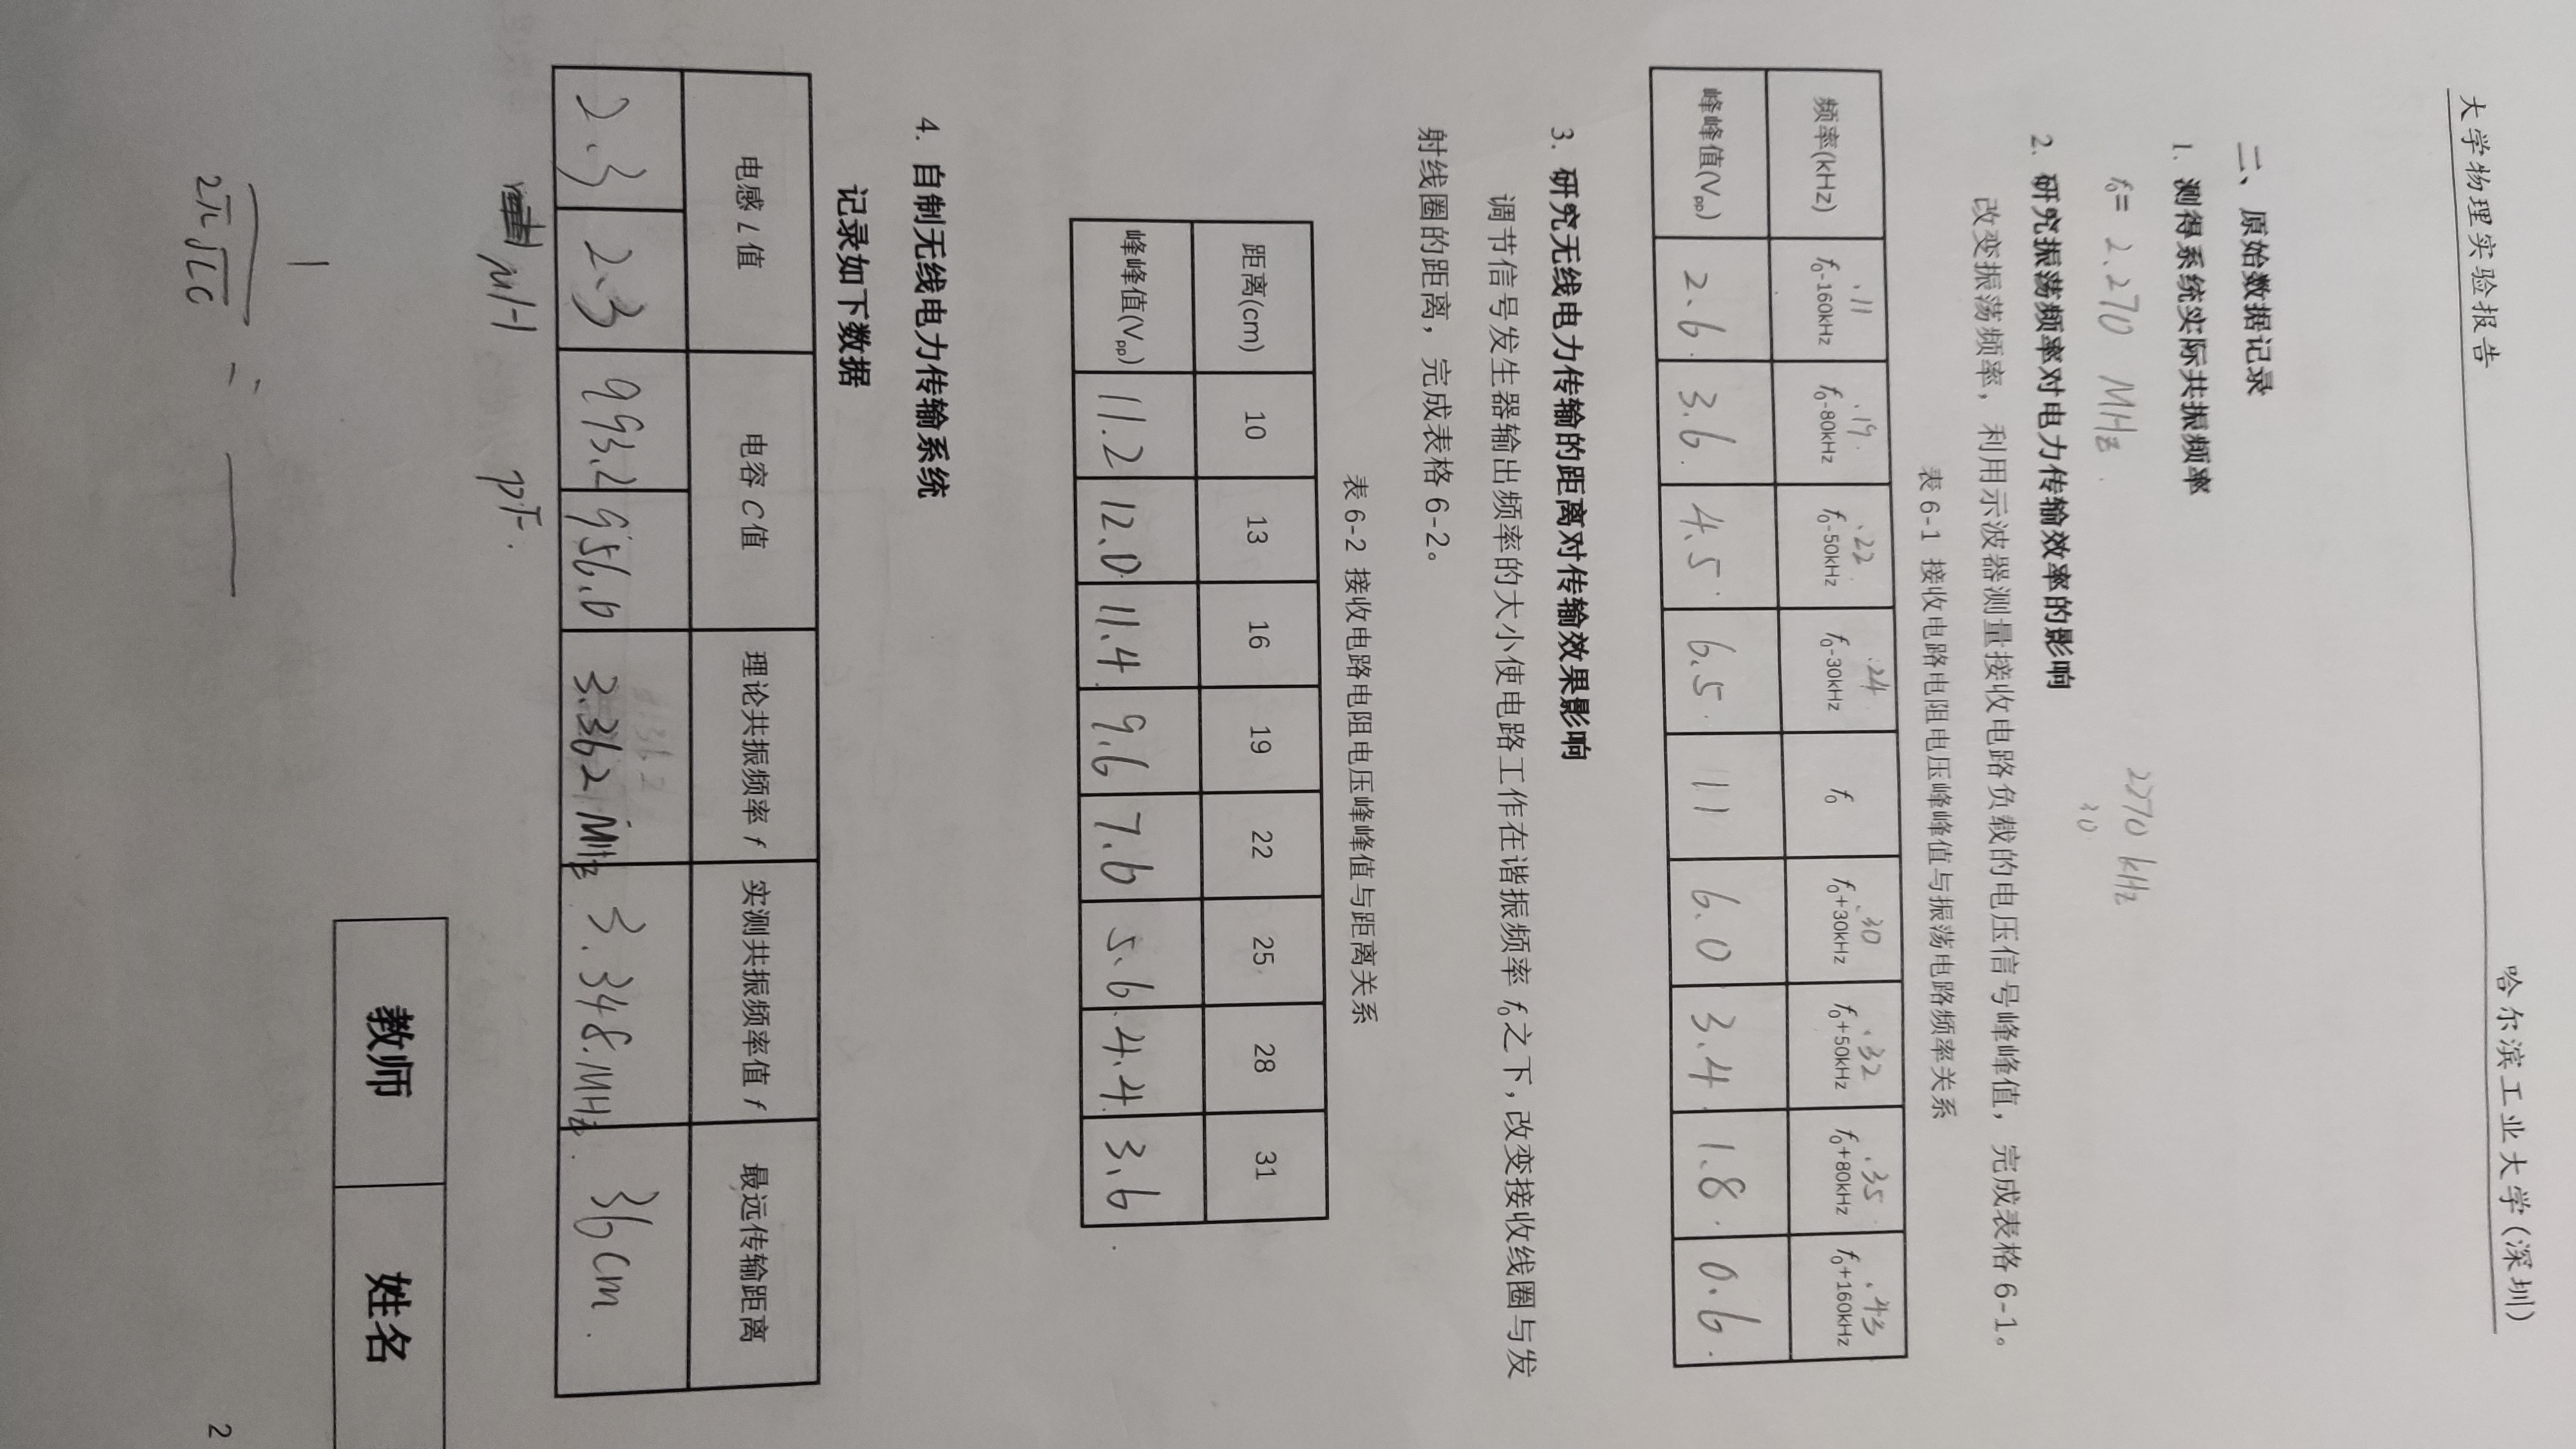 大学物理实验报告 哈尔滨工业大学(深圳)
二、原始数据记录
1. 测得系统实际共振频率
f₀= 2.270 MHz. 2270 kHz
30
2. 研究振荡频率对电力传输效率的影响
改变振荡频率，利用示波器测量接收电路负载的电压信号峰峰值，完成表格 6-1。
表 6-1 接收电路电阻电压峰峰值与振荡电路频率关系
.11 .19 .22 .24 .30 .32 .35 .43
频率(kHz) f₀-160kHz f₀-80kHz f₀-50kHz f₀-30kHz f₀ f₀+30kHz f₀+50kHz f₀+80kHz f₀+160kHz
峰峰值(Vpp) 2.6 3.6 4.5 6.5 11 6.0 3.4 1.8 0.6
3. 研究无线电力传输的距离对传输效果影响
调节信号发生器输出频率的大小使电路工作在谐振频率 f₀之下，改变接收线圈与发
射线圈的距离，完成表格 6-2。
表 6-2 接收电路电阻电压峰峰值与距离关系
距离(cm) 10 13 16 19 22 25 28 31
峰峰值(Vpp) 11.2 12.0 11.4 9.6 7.6 5.6 4.4 3.6
4. 自制无线电力传输系统
记录如下数据
电感 L 值 电容 C 值 理论共振频率 f 实测共振频率值 f 最远传输距离
2.3 2.3 993.2 956.0 3.362 MHz 3.348 MHz 36cm
μH pF.
教师 姓名
1
2π√LC =
2